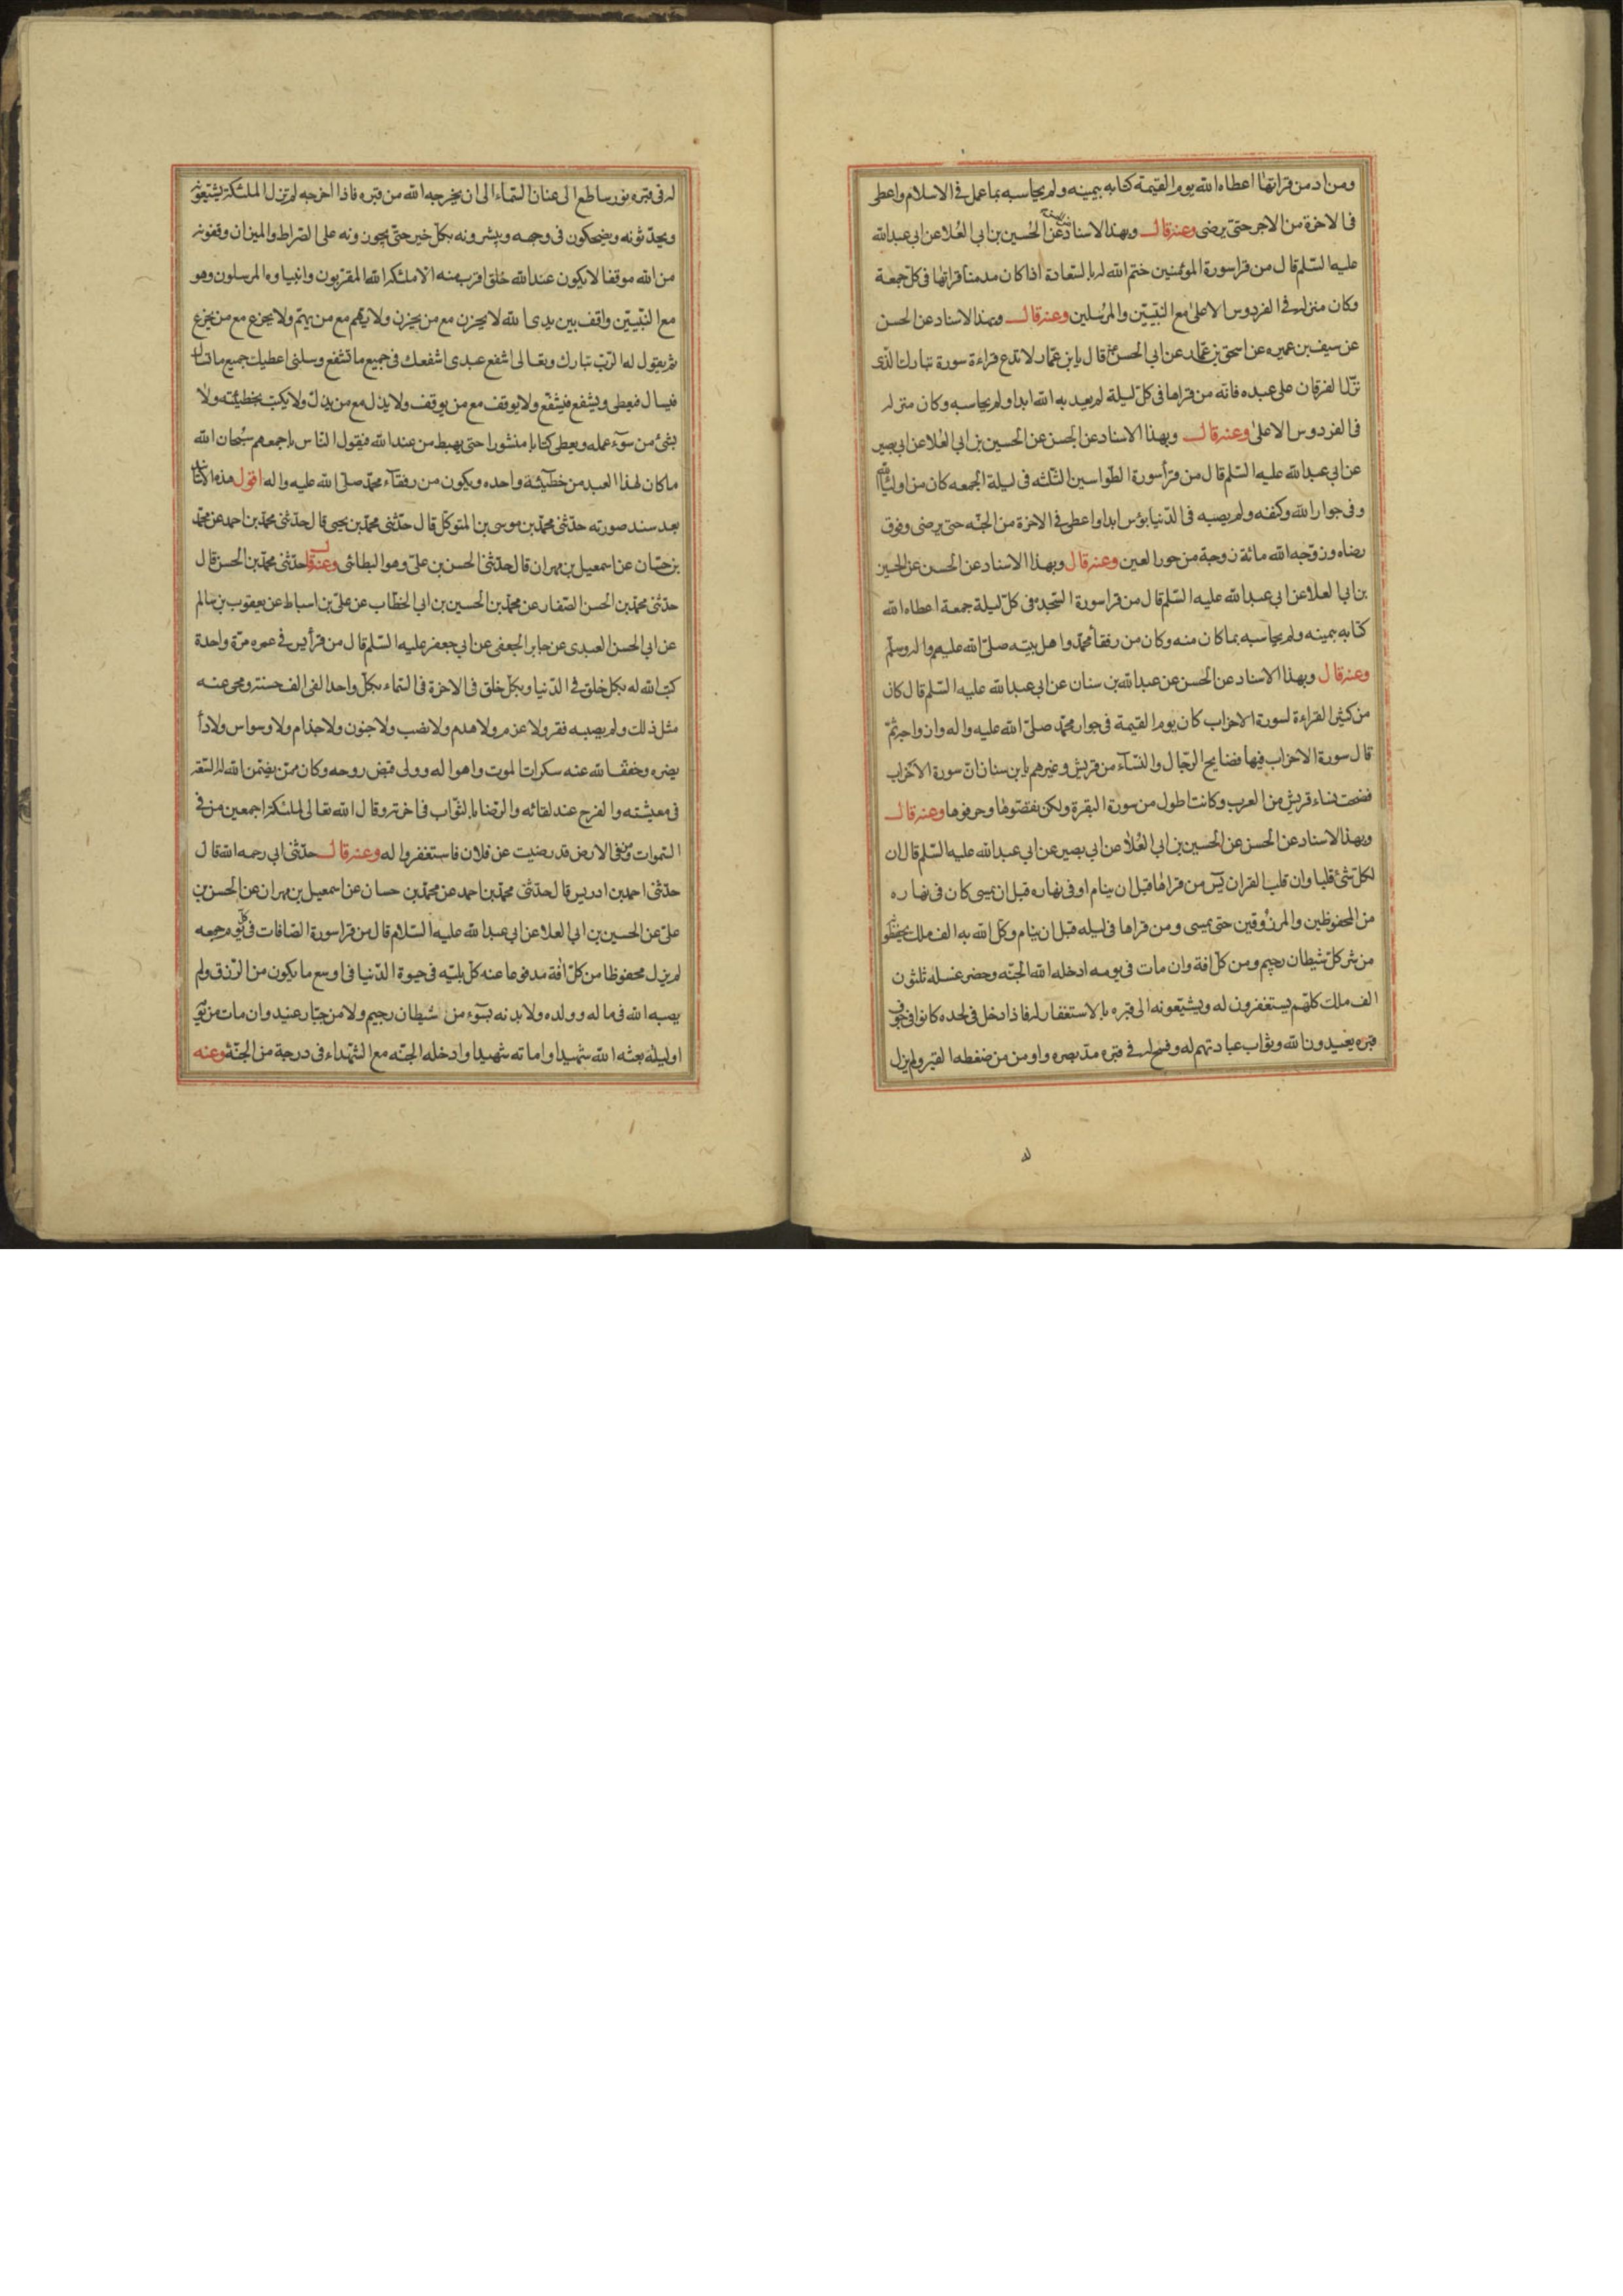 ومن ادمن قراتها اعطاه الله يوم القيمة كتابه بيمينه ولم يحاسبه بما عمل فى الاسلام واعطى
فى الاخرة من الاجر حتى يرضى وعنه قال وبهذا الاسناد عن الحسين بن ابى العلا عن ابى عبدالله
عليه السلم قال من قرا سورة المؤمنين ختم الله له بالسعادة اذا كان مدمنا قراتها فى كل جمعة
وكان منزله فى الفردوس الاعلى مع النبيين والمرسلين وعنه قال وبهذا الاسناد عن الحسن
عن سيف بن عميره عن اسحق بن عمار عن ابى الحسن قال يا بن عمار لا تدع قراءة سورة تبارك الذى
نزل الفرقان على عبده فانه من قراها فى كل ليلة لم يعذبه الله ابدا ولم يحاسبه وكان منزله
فى الفردوس الاعلى وعنه قال وبهذا الاسناد عن الحسن عن الحسين بن ابى العلا عن ابى بصير
عن ابى عبدالله عليه السلم قال من قرأ سورة الطواسين الثلثه فى ليلة الجمعه كان من اولياء الله
وفى جوار الله وكنفه ولم يصبه فى الدنيا بؤس ابدا واعطى فى الاخرة من الجنه حتى يرضى وفوق
رضاه وزوجه الله مائة زوجة من حور العين وعنه قال وبهذا الاسناد عن الحسن عن الحسين
بن ابى العلا عن ابى عبدالله عليه السلم قال من قرا سورة السجدة فى كل ليلة جمعة اعطاه الله
كتابه بيمينه ولم يحاسبه بما كان منه وكان من رفقأ محمد واهل بيته صلى الله عليهم واله وسلم
وعنه قال وبهذا الاسناد عن الحسن عن عبدالله بن سنان عن ابى عبدالله عليه السلم قال كان
من كثير القراءة لسورة الاحزاب كان يوم القيمة فى جوار محمد صلى الله عليه واله وازواجه ثم
قال سورة الاحزاب فيها فضايح الرجال والنسآء من قريش وغيرهم يا بن سنان ان سورة الاحزاب
فضحت نساء قريش من العرب وكانت اطول من سورة البقرة ولكن نقصوها وحرفوها وعنه قال
وبهذا الاسناد عن الحسن عن الحسين بن ابى العلا عن ابى بصير عن ابى عبدالله عليه السلم قال ان
لكل شئ قلبا وان قلب القران يس من قراها قبل ان ينام او فى نهاره قبل ان يمسى كان فى نهاره
من المحفوظين والمرزوقين حتى يمسى ومن قراها فى ليله قبل ان ينام وكل الله به الف ملك يحفظو
من شر كل شيطان رجيم ومن كل افة وان مات فى يومه ادخله الله الجنه وحضر غسله ثلثون
الف ملك كلهم يستغفرون له ويشيعونه الى قبره بالاستغفار له فاذا دخل فى لحده كانوا فى جوف
قبره يعبدون الله وثواب عبادتهم له وفسح له فى قبره مد بصره واومن من ضغطه القبر ولم يزل
له فى قبره نور ساطع الى عنان السماء الى ان يخرجه الله من قبره فاذا اخرجه لم تزل الملئكة يشيعونه
ويحدثونه ويضحكون فى وجهه ويبشرونه بكل خير حتى يجوزونه على الصراط والميزان وقفونه
من الله موقفا لا يكون عند الله خلق اقرب منه الا ملئكه الله المقربون وانبياوه المرسلون وهو
مع النبيين واقف بين يدى الله لا يحزن مع من يحزن ولا يهتم مع من يهتم ولا يجزع مع من يجزع
ثم يقول له الرب تبارك وتعالى اشفع عبدى اشفعك فى جميع ما تشفع وسلنى اعطيك جميع ما تسأل
فيسال فيعطى ويشفع فيشفع ولا يوقف مع من يوقف ولا يذل مع من يذل ولا يكتب بخطيئته ولا
بشئ من سوء عمله ويعطى كتابا منشورا حتى يهبط من عند الله فيقول الناس باجمعهم سبحان الله
ما كان لهذا العبد من خطيئة واحده ويكون من رفقآء محمد صلى الله عليه واله اقول هذه الاسناد
بعد سند صورته حدثنى محمد بن موسى بن المتوكل قال حدثنى محمد بن يحيى قال حدثنى محمد بن احمد عن محمد
بن حسان عن اسمعيل بن مهران قال حدثنى الحسن بن على وهو البطائنى وعنه قال حدثنى محمد بن الحسن قال
حدثنى محمد بن الحسن الصفار عن محمد بن الحسين بن ابى الخطاب عن على بن اسباط عن يعقوب بن سالم
عن ابى الحسن العبدى عن جابر الجعفى عن ابى جعفر عليه السلم قال من قرأ يس فى عمره مرة واحدة
كتب الله له بكل خلق فى الدنيا وبكل خلق فى الاخرة فى السماء بكل واحد الفى الف حسنة ومحى عنه
مثل ذلك ولم يصبه فقر ولا عزم ولا هدم ولا نصب ولا جنون ولا جذام ولا وسواس ولا دأ
يضره وخفف الله عنه سكرات الموت واهواله وولى قبض روحه وكان ممن يضمن الله له السعة
فى معيشته والفرح عند لقائه والرضا بالثواب فى اخرته وقال الله تعالى لملئكته اجمعين من فى
السموات ومن فى الارض قد رضيت عن فلان فاستغفروا له وعنه قال حدثنى ابى رحمه الله قال
حدثنى احمد بن ادريس قال حدثنى محمد بن احمد عن محمد بن حسان عن اسمعيل بن مهران عن الحسن بن
على عن الحسين بن ابى العلا عن ابى عبدالله عليه السلام قال من قرا سورة الصافات فى كل يوم جمعه
لم يزل محفوظا من كل افة مدفوعا عنه كل بليه فى حيوة الدنيا فى اوسع ما يكون من الرزق ولم
يصبه الله فى ماله وولده ولا بدنه بسوء من شيطان رجيم ولا من جبار عنيد وان مات من يومه
او ليلة بعثه الله شهيدا واماته شهيدا وادخله الجنه مع الشهداء فى درجة من الجنة وعنه
له